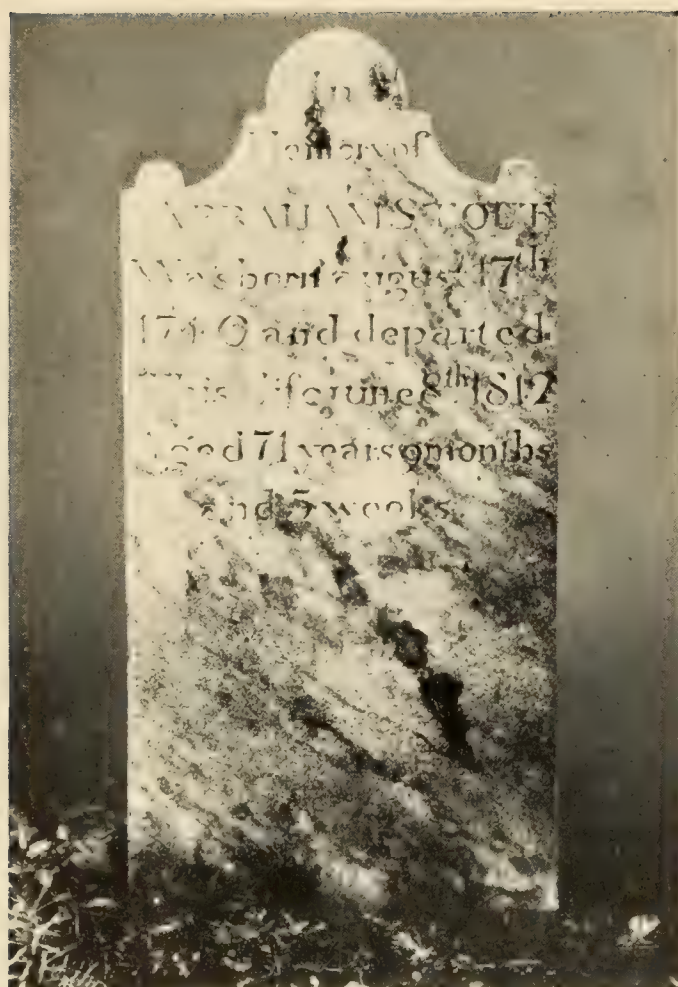 In
Memory of
ABRAHAM STOUT
Was born august 17th
1740 and departed
This life iune 8th 1812
aged 71 years 9 months
and 3 weeks